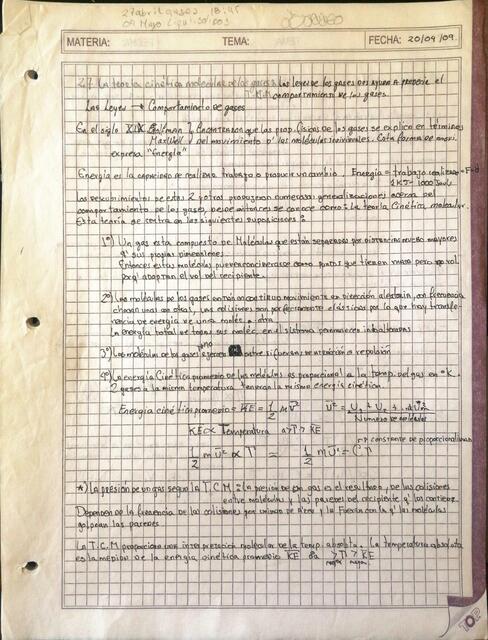 27 abril gases 18:45
09 Mayo Liqui. sol.
MATERIA: TEMA: FECHA: 20/04/09.
2.7 La teoría cinética molecular de los gases: Las leyes de los gases nos ayudan A predecir el
comportamiento de los gases.
Las Leyes → Comportamineto de gases
En el siglo XIX Boltzmann y Maxwell Encontraron que las prop. físicas de los gases se explica en términos
del movimiento d' las moléculas individuales. Esta forma de mov.
expresa "Energía"
Energía es la capacidad de realizar trabajo o producir un cambio. Energía = trabajo realizado = F·d
1 KJ = 1000 Joule
Los descubrimientos de estos 2 y otros produjeron numerosas generalizaciones acerca del
comportamiento de los gases, desde entonces se conoce como: La teoría Cinética molecular.
Esta teoría se centra en las siguientes suposiciones:
1°) Un gas esta compuesto de Moléculas que están separadas por distancias mucho mayores
q' sus propias dimensiones
Entonces estas moléculas pueden considerarse como puntos que tienen masa pero no vol.
pq' adoptan el vol del recipiente.
2°) Las moléculas de los gases están en continuo movimiento en dirección aleatoria, con frecuencia
chocan unas con otras, las colisiones son perfectamente elásticas por lo que hay transfe-
rencia de energía de una moléc. a otra.
La energía total de todas sus moléc. en el sistema permanecen inhalteradas
3°) Las moléculas de los gases no ejercen entre si fuerzas de atracción o repulsión
4°) La energía Cinética promedio de las moléculas es proporcional a la temp. del gas en °K.
2 gases a la misma temperatura tendran la misma energía cinética.
Energía cinética promedio = KE = 1/2 m ū² ū² = U₁² + U₂² + ... + Uₙ² / Número de moléculas
KE ∝ Temperatura a >T >KE
1/2 m ū² ∝ T ≈ 1/2 m ū² = C T → constante de proporcionalidad
*) La presión de un gas según la T.C.M = La presión de un gas es el resultado de las colisiones
entre moléculas y las paredes del recipiente q' los contiene.
Dependen de la frecuencia de las colisiones por unidad de Area y la Fuerza con la q' las moléculas
golpean las paredes
La T.C.M proporciona una interpretación molecular de la temp. absoluta. La temperatura absoluta
es la medida de la energía cinética promedio KE a >T >KE
mayor mayor
TOP